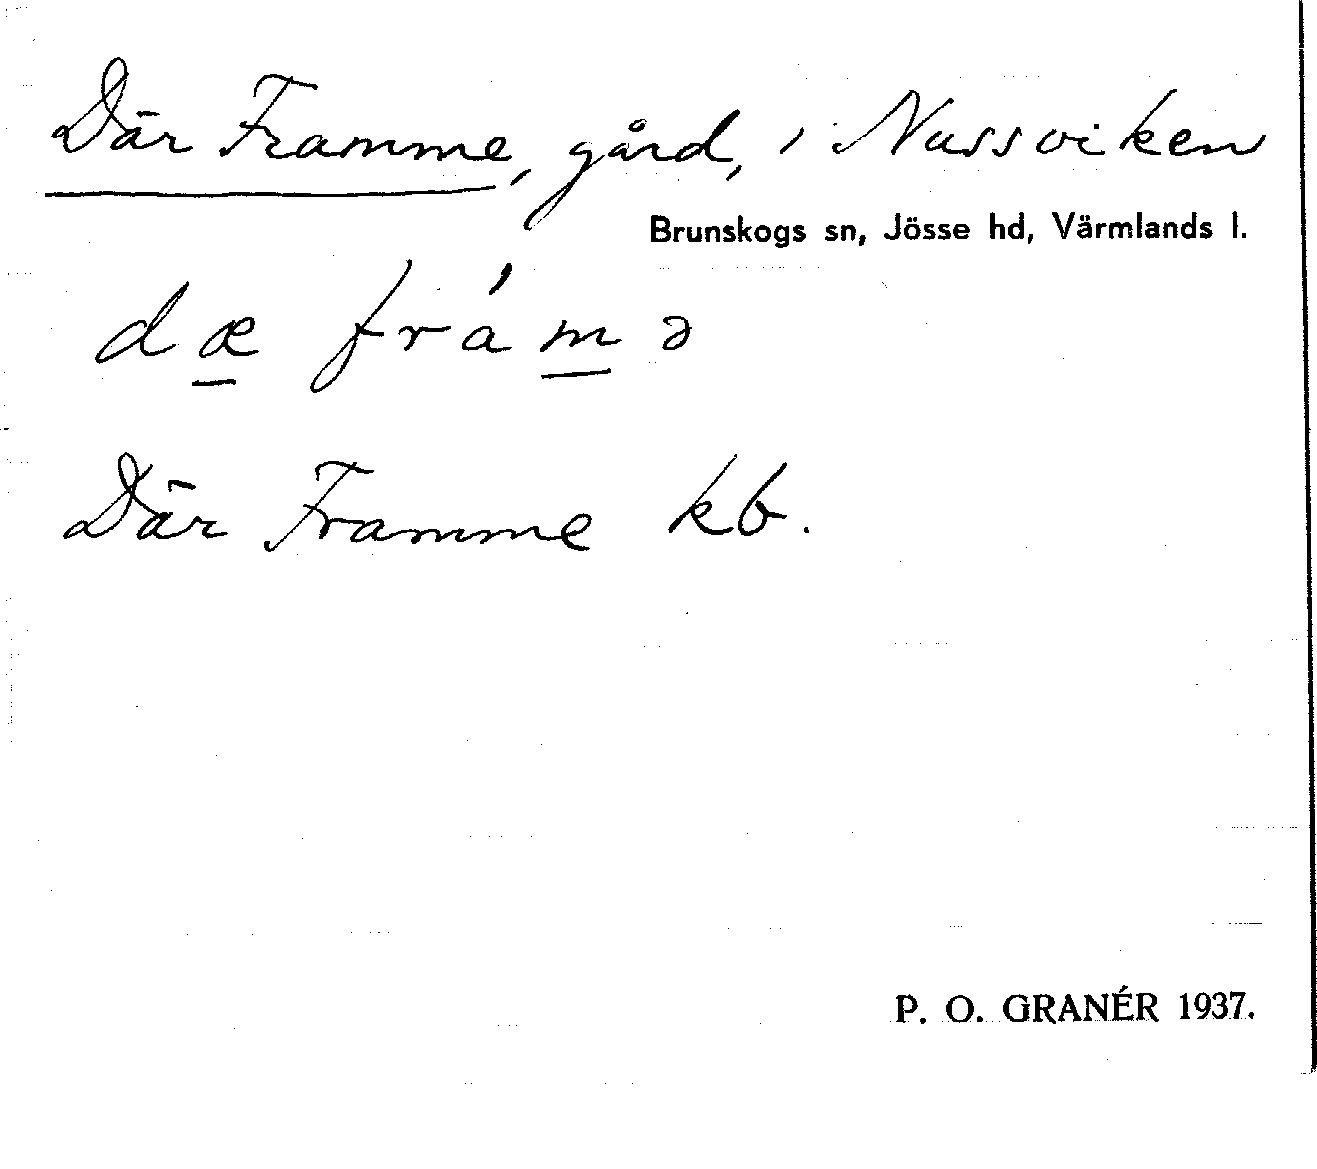 Där Framme, gård, i Nussviken
Brunskogs sn, Jösse hd, Värmlands l.
dæ̱ frám̱ə
Där Framme kb.
P. O. GRANÉR 1937.